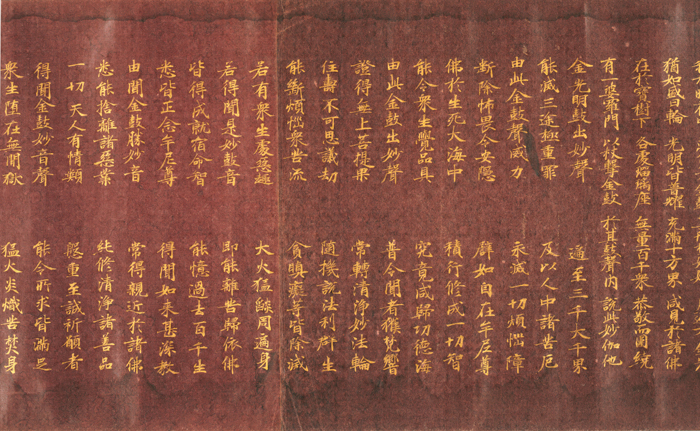 猶如盛日輪 光明皆普耀 充滿十方界 咸見於諸佛
在於寶樹下 各處瑠璃座 無量百千眾 恭敬而圍繞
有一婆羅門 以桴擊金鼓 於其鼓聲內 說此妙伽他
金光明鼓出妙聲 遍至三千大千界
能滅三途極重罪 及以人中諸苦厄
由此金鼓聲威力 永滅一切煩惱障
斷除怖畏令安隱 譬如自在牟尼尊
佛於生死大海中 積行修成一切智
能令眾生覺品具 究竟咸歸功德海
由此金鼓出妙聲 普令聞者獲梵響
證得無上菩提果 常轉清淨妙法輪
住壽不可思議劫 隨機說法利群生
能斷煩惱眾苦流 貪瞋癡等皆除滅
若有眾生處惡趣 大火猛焰周遍身
若得聞是妙鼓音 即能離苦歸依佛
皆得成就宿命智 能憶過去百千生
悉皆正念牟尼尊 得聞如來甚深教
由聞金鼓勝妙音 常得親近於諸佛
悉能捨離諸惡業 純修清淨諸善品
一切天人有情類 殷重至誠祈願者
得聞金鼓妙音聲 能令所求皆滿足
眾生墮在無間獄 猛火炎熾苦焚身